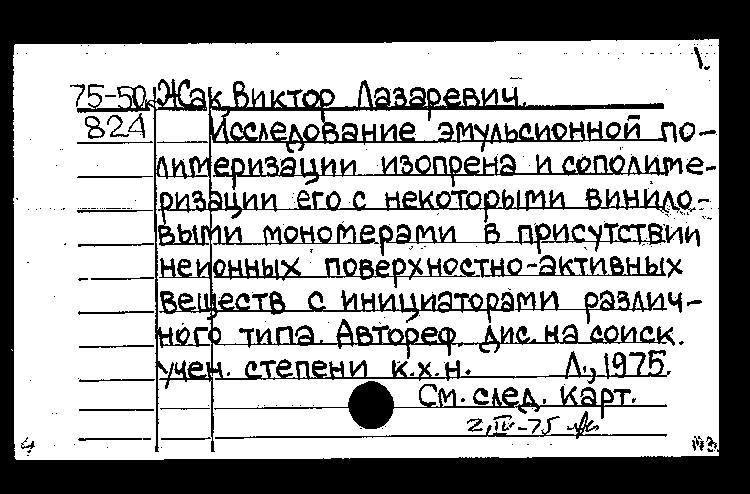 1.
75-50 Жак, Виктор Лазаревич.
824 Исследование эмульсионной по-
лимеризации изопрена и сополиме-
ризации его с некоторыми винило-
выми мономерами в присутствии
неионных поверхностно-активных
веществ с инициаторами различ-
ного типа. Автореф. дис. на соиск.
учен. степени к.х.н. Л., 1975.
См. след. карт.
2, IV-75